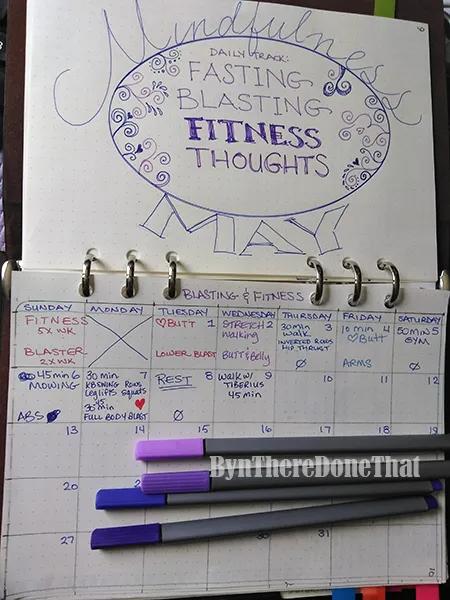 Mindfulness
DAILY TRACK:
FASTING
BLASTING
FITNESS
THOUGHTS
MAY
BLASTING & FITNESS
SUNDAY MONDAY TUESDAY WEDNESDAY THURSDAY FRIDAY SATURDAY
FITNESS
5X WK
BLASTER
2X WK
♡BUTT 1
LOWER BLAST
STRETCH 2
Walking
Butt & Belly
30 min 3
walk
INVERTED ROWS
HIP THRUST
Ø
10 min 4
♡Butt
ARMS
50 MIN 5
GYM
Ø
45 min 6
MOWING
ABS
30 min 7
KB SWING ROWS
Leg lifts squats
45
30 min ♥
FULL BODY BLAST
REST 8
Ø
WALK W/ 9
TIBERIUS
45 min
10
11
12
13 14 15 16 17 18 19
20
27
30 31
BynThereDoneThat